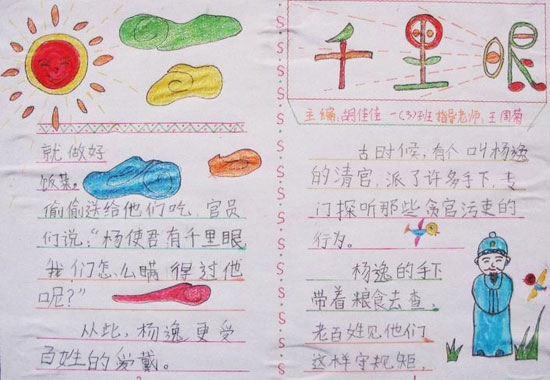 千里眼
主编:胡佳佳 一(3)班 指导老师:王国菊
古时候,有个叫杨逸
的清官,派了许多手下,专
门探听那些贪官污吏的
行为。
杨逸的手下
带着粮食去查,
老百姓见他们
这样守规矩,
就做好
饭菜,
偷偷送给他们吃,官员
们说:“杨使君有千里眼
我们怎么瞒得过他
呢?”
从此,杨逸更受
百姓的爱戴。